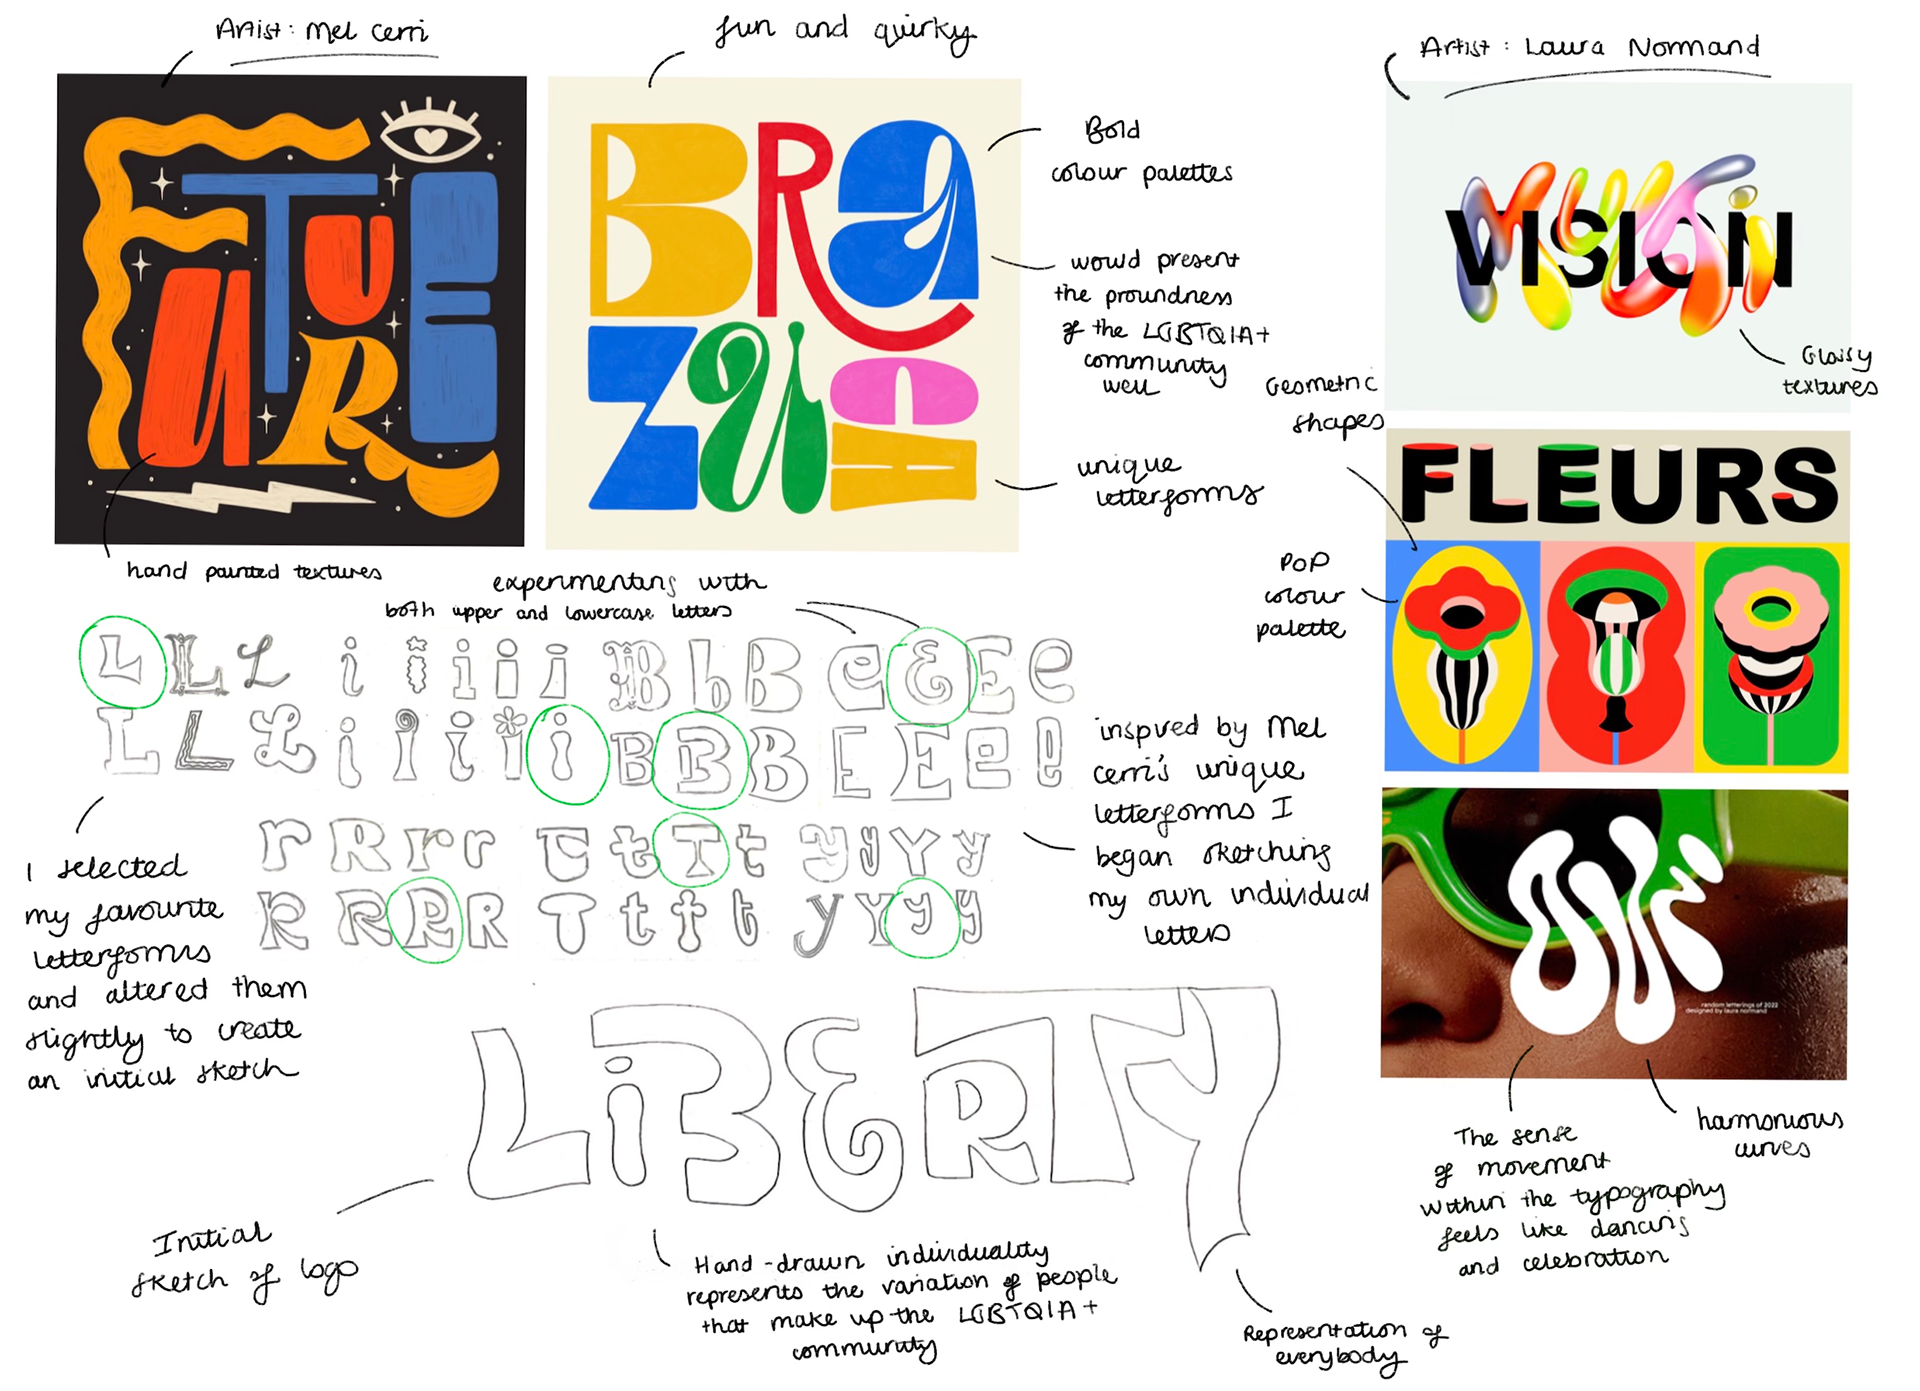 Artist: Mel Cerri
FUTURE
hand painted textures
fun and quirky
BRAZUCA
Bold
colour palettes
would present
the proundness
of the LGBTQIA+
community
well
unique
letterforms
Artist: Laura Normand
VISION
Glossy
textures
Geometric
shapes
FLEURS
POP
colour
palette
random letterings of 2022
designed by laura normand
The sense
of movement
within the typography
feels like dancing
and celebration
harmonious
curves
experimenting with
both upper and lowercase letters
L L L i i i i i B b B e E E e
L L L i i i i i B B B E E e e
r R r r T t T t y y Y y
R R R R T t t t y Y y y
I selected
my favourite
letterforms
and altered them
slightly to create
an initial sketch
inspired by Mel
Cerri's unique
letterforms I
began sketching
my own individual
letters
LiBERTY
Initial
sketch of logo
Hand-drawn individuality
represents the variation of people
that make up the LGBTQIA+
community
Representation of
everybody